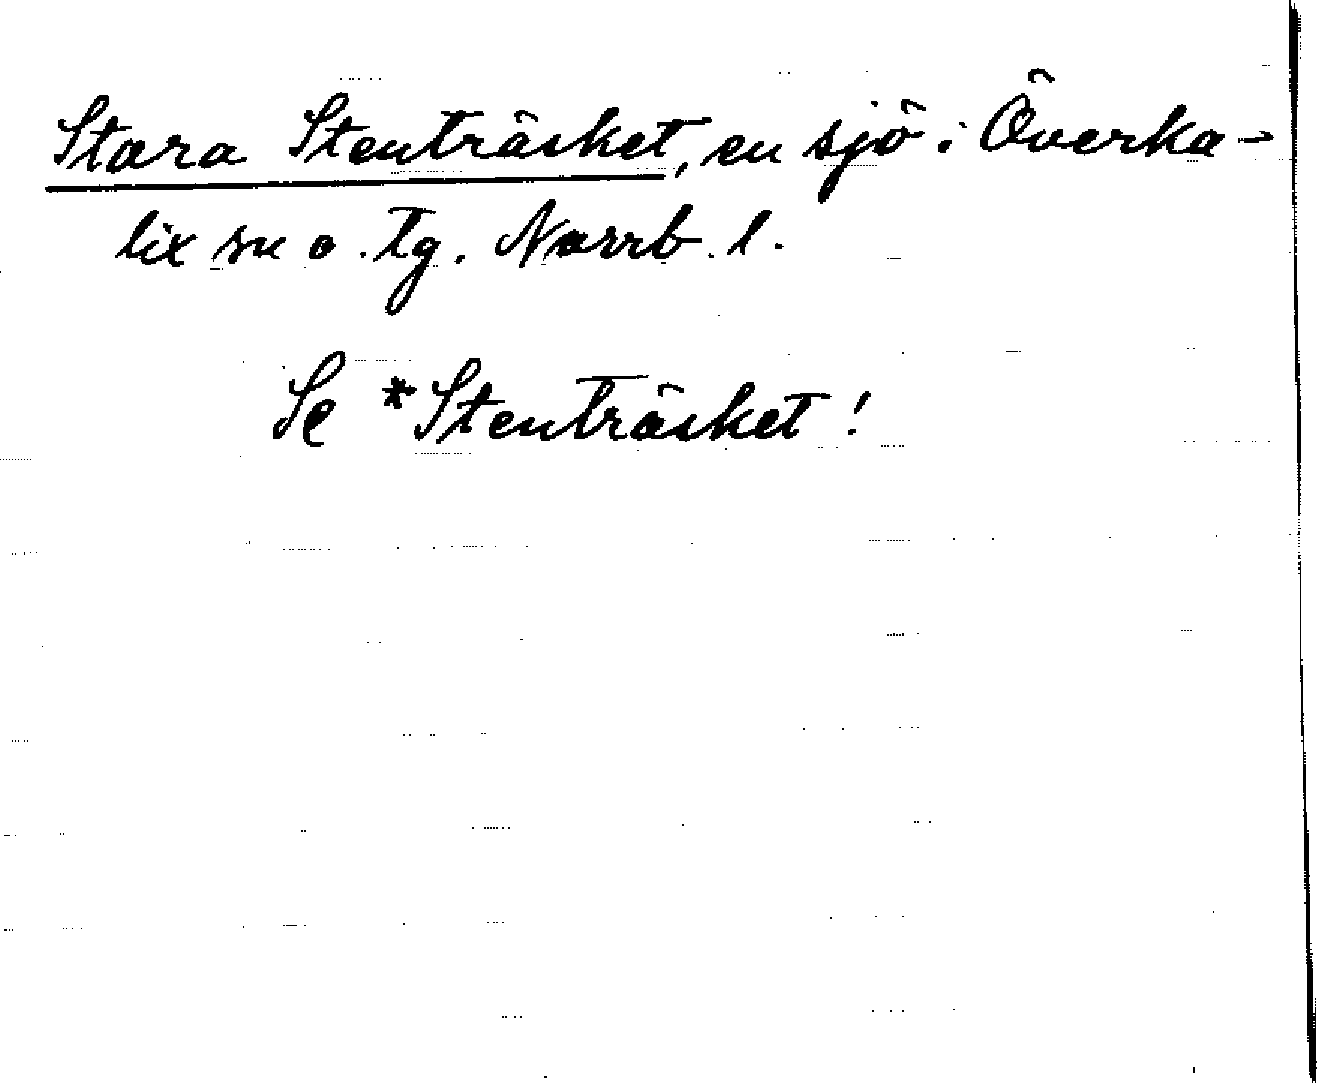 Stora Stenträsket, en sjö i Överka-
lix sn o. tg. Norrb. l.
Se *Stenträsket!